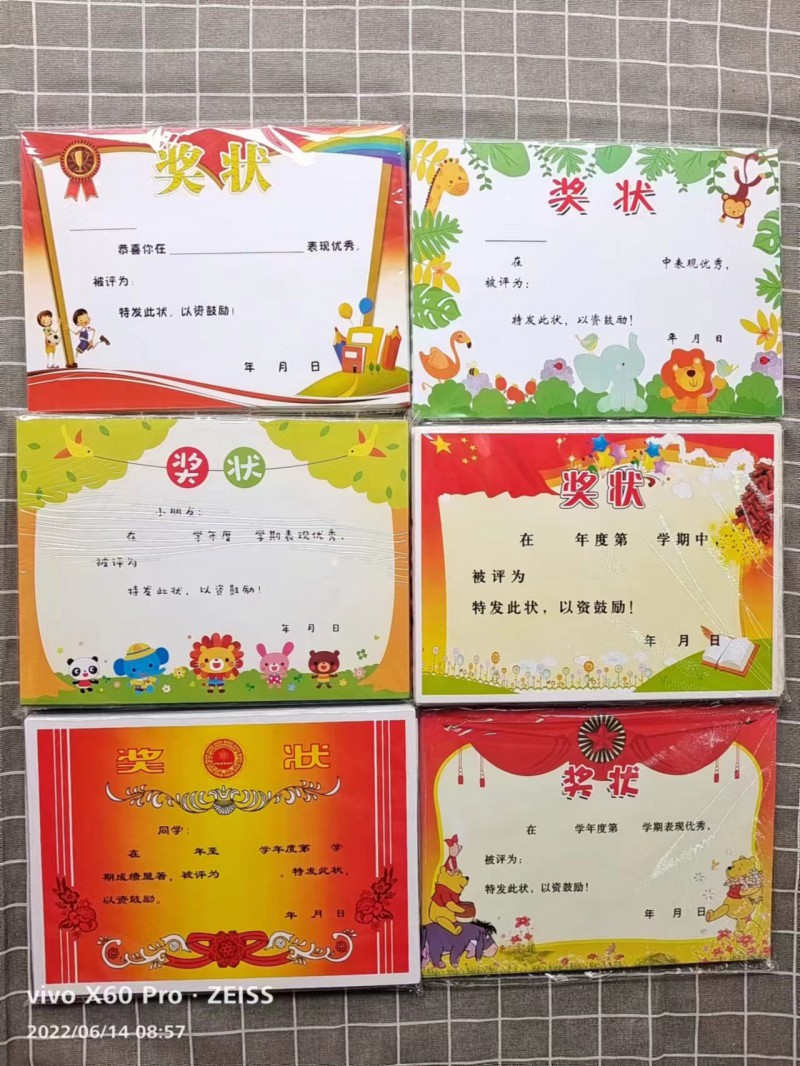 奖状
恭喜你在 表现优秀，
被评为：
特发此状，以资鼓励！
年 月 日
奖状
在 中表现优秀，
被评为：
特发此状，以资鼓励！
年 月 日
奖状
小朋友：
在 学年度 学期表现优秀，
被评为
特发此状，以资鼓励！
年 月 日
奖状
在 年度第 学期中，
被评为
特发此状，以资鼓励！
年 月 日
奖 状
同学：
在 年至 学年度第 学
期成绩显著，被评为 。特发此状，
以资鼓励。
年 月 日
奖状
在 学年度第 学期表现优秀，
被评为：
特发此状，以资鼓励！
年 月 日
vivo X60 Pro · ZEISS
2022/06/14 08:57